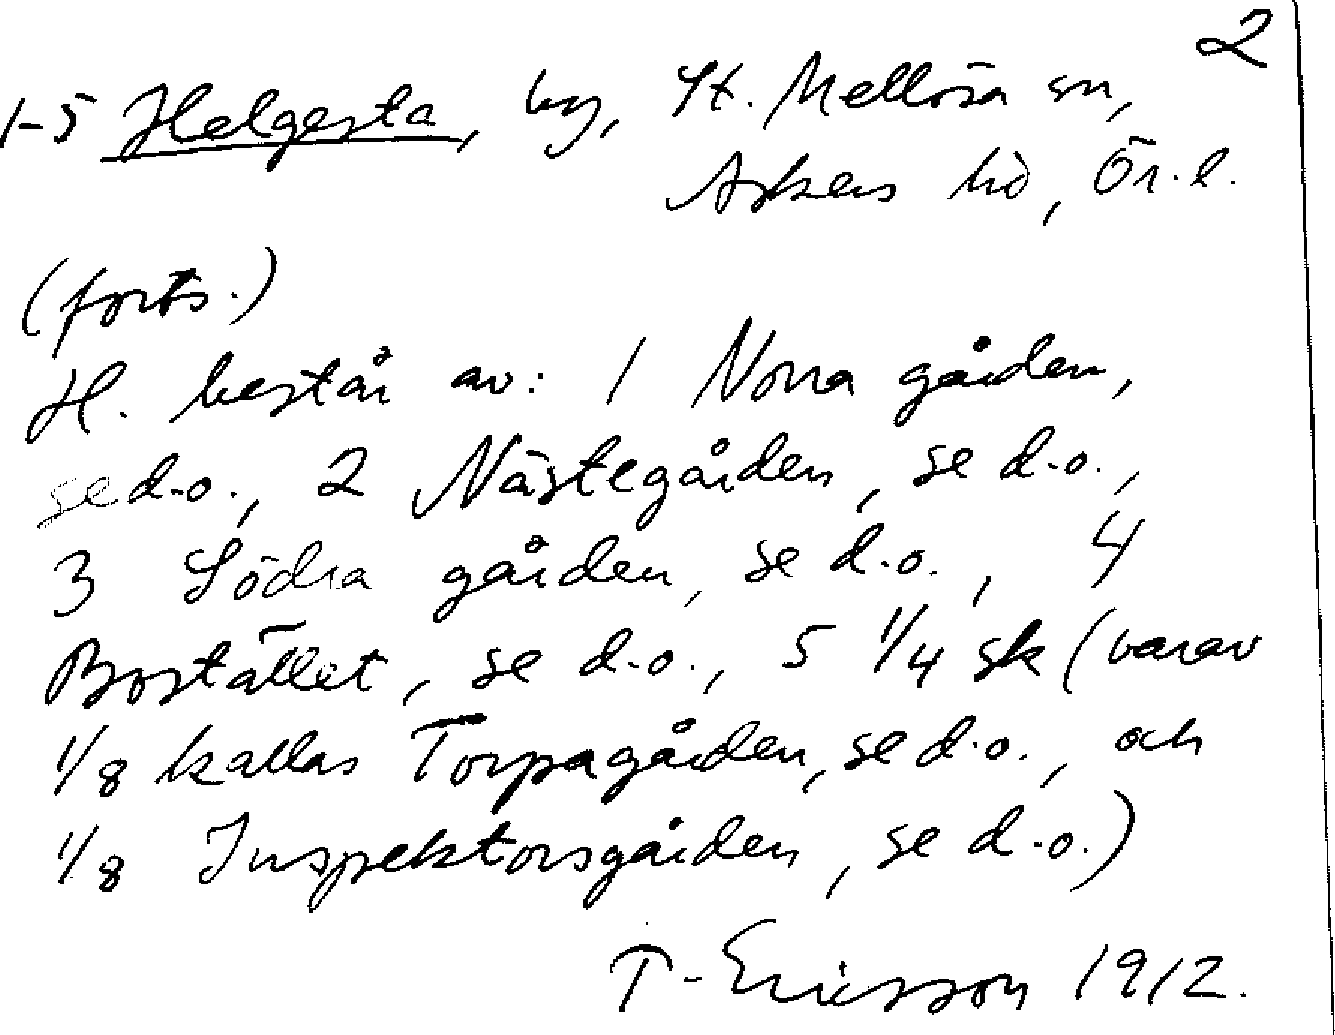 2
1-5 Helgesta, by, St. Mellösa sn,
Askers hd, Ör.l.
(forts.)
H. består av: 1 Norra gården,
se d.o., 2 Nästegården, se d.o.,
3 Södra gården, se d.o., 4
Bostället, se d.o., 5 1/4 sk (varav
1/8 kallas Torpagården, se d.o., och
1/8 Inspektorsgården, se d.o.)
T. Ericsson 1912.